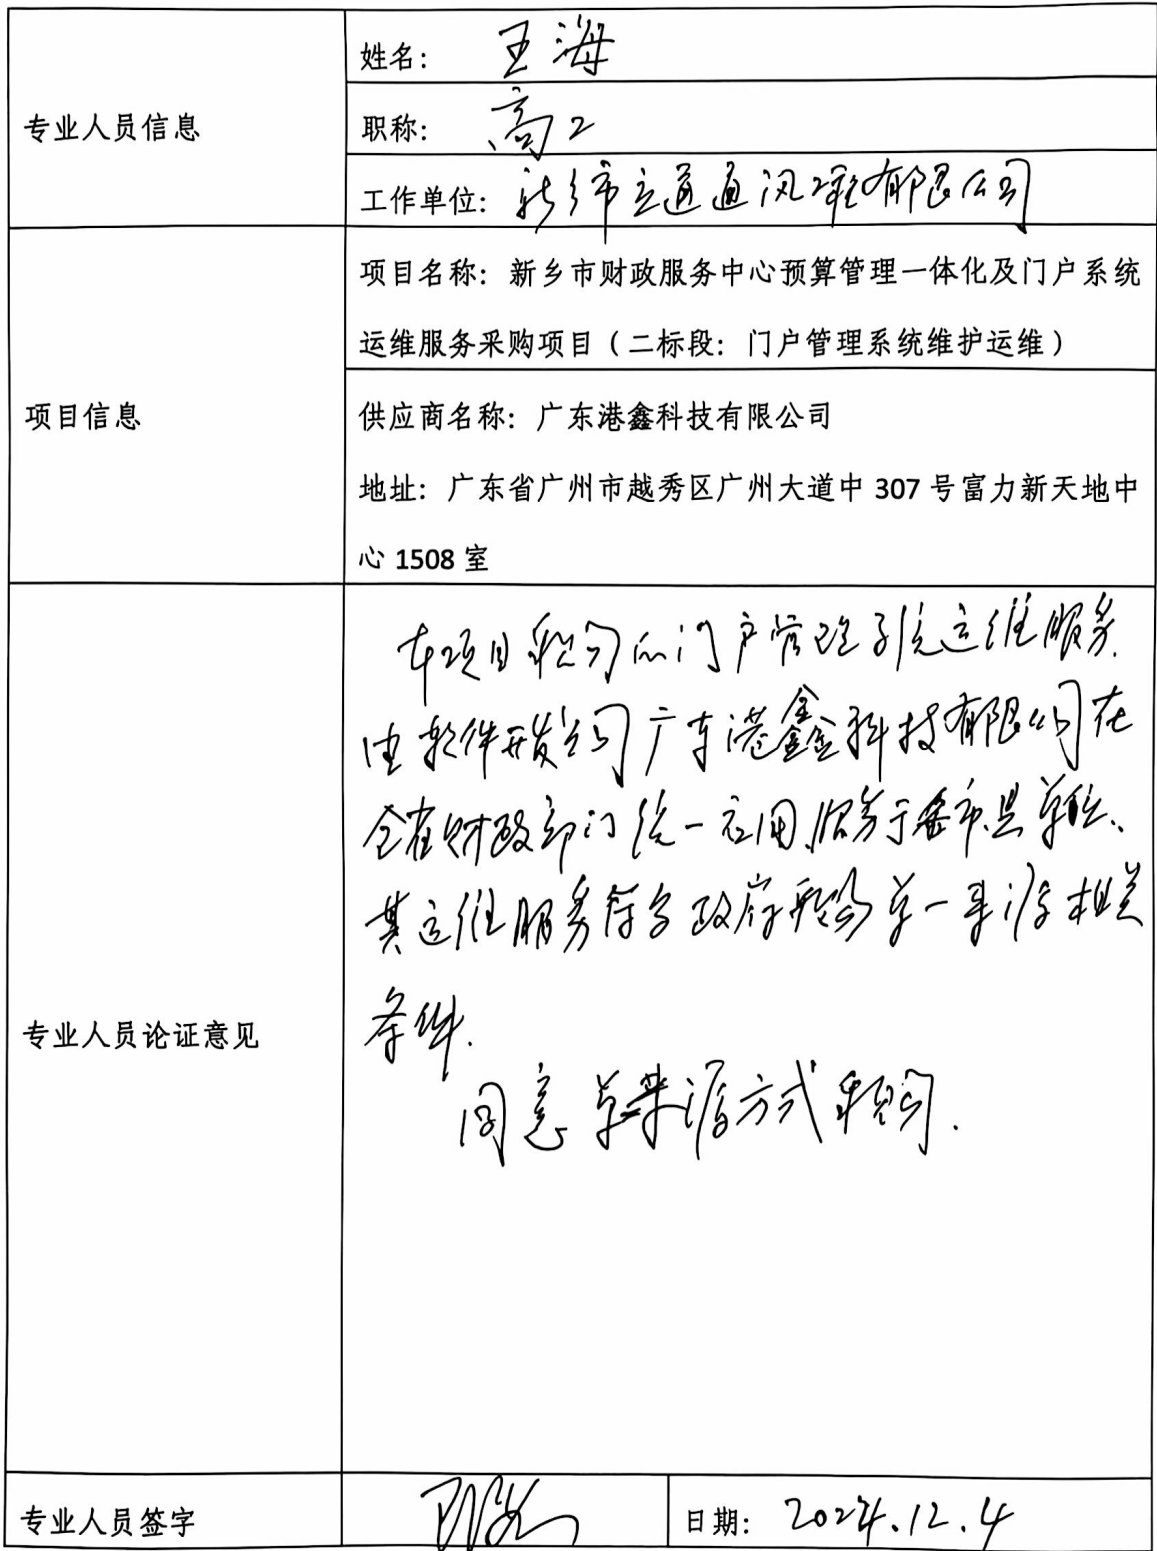 专业人员信息
姓名： 王海
职称： 高工
工作单位： 新乡市立通通讯工程有限公司
项目信息
项目名称：新乡市财政服务中心预算管理一体化及门户系统
运维服务采购项目（二标段：门户管理系统维护运维）
供应商名称：广东港鑫科技有限公司
地址：广东省广州市越秀区广州大道中 307 号富力新天地中
心 1508 室
专业人员论证意见
本项目采购的门户管理系统运维服务.
由软件开发公司广东港鑫科技有限公司在
全省财政部门统一应用,服务于全市县单位、
其运维服务符合政府采购单一来源相关
条件.
同意单一来源方式采购.
专业人员签字
王海
日期： 2024.12.4